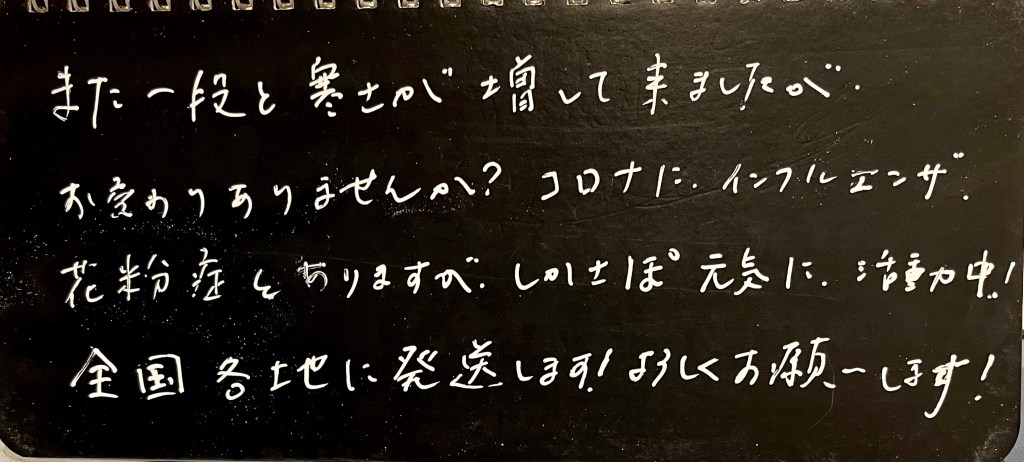 また一段と寒さが増して来ましたが.
お変わりありませんか?コロナに.インフルエンザ.
花粉症とありますが.しかさぽ元気に.活動中!
全国各地に発送します!よろしくお願いします!